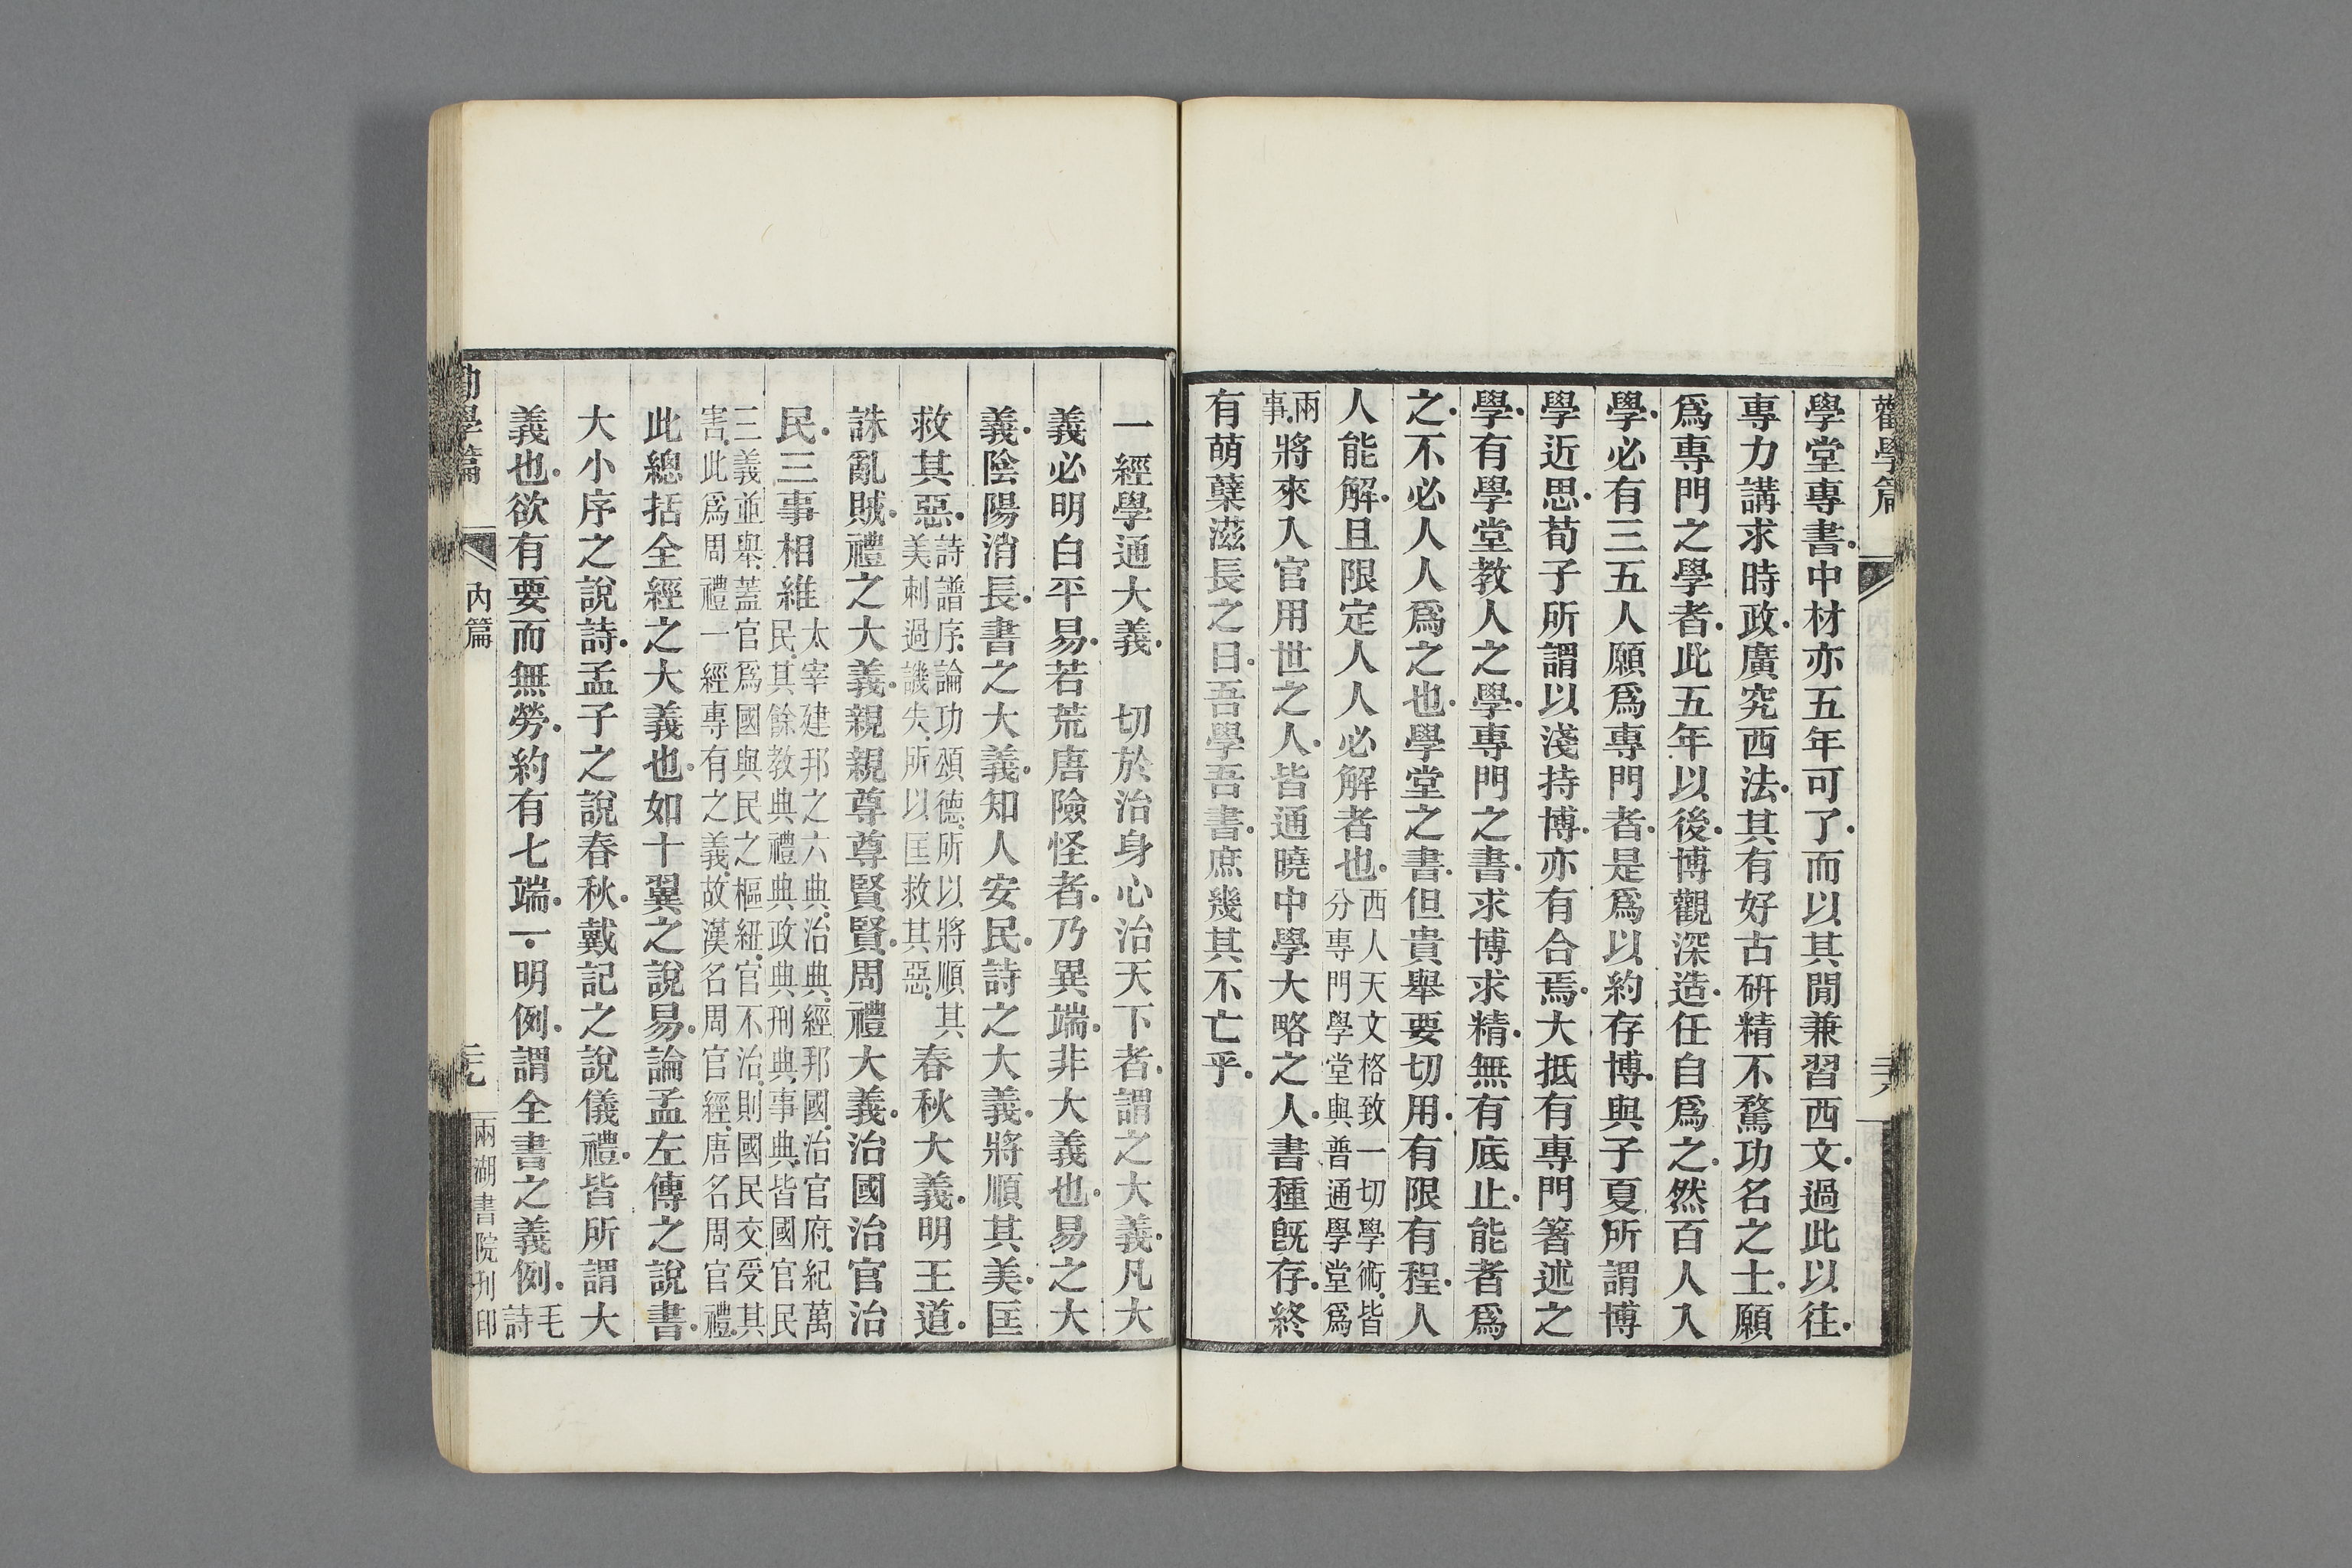 勸學篇
三八
學堂專書中材亦五年可了而以其閒兼習西文過此以往
專力講求時政廣究西法其有好古研精不騖功名之士願
爲專門之學者此五年以後博觀深造任自爲之然百人入
學必有三五人願爲專門者是爲以約存博與子夏所謂博
學近思荀子所謂以淺持博亦有合焉大抵有專門箸述之
學有學堂教人之學專門之書求博求精無有底止能者爲
之不必人人爲之也學堂之書但貴舉要切用有限有程人
人能解且限定人人必解者也西人天文格致一切學術皆
分專門學堂與普通學堂爲
兩
事將來入官用世之人皆通曉中學大略之人書種旣存終
有萌蘖滋長之日吾學吾書庶幾其不亡乎
一經學通大義 切於治身心治天下者謂之大義凡大
義必明白平易若荒唐險怪者乃異端非大義也易之大
義陰陽消長書之大義知人安民詩之大義將順其美匡
救其惡詩譜序論功頌德所以將順其
美刺過譏失所以匡救其惡春秋大義明王道
誅亂賊禮之大義親親尊尊賢賢周禮大義治國治官治
民三事相維太宰建邦之六典治典經邦國治官府紀萬
民其餘教典禮典政典刑典事典皆國官民
三義並舉蓋官爲國與民之樞紐官不治則國民交受其
害此爲周禮一經專有之義故漢名周官經唐名周官禮
此總括全經之大義也如十翼之說易論孟左傳之說書
大小序之說詩孟子之說春秋戴記之說儀禮皆所謂大
義也欲有要而無勞約有七端一明例謂全書之義例毛
詩
勸學篇
內篇
元
兩湖書院刊印